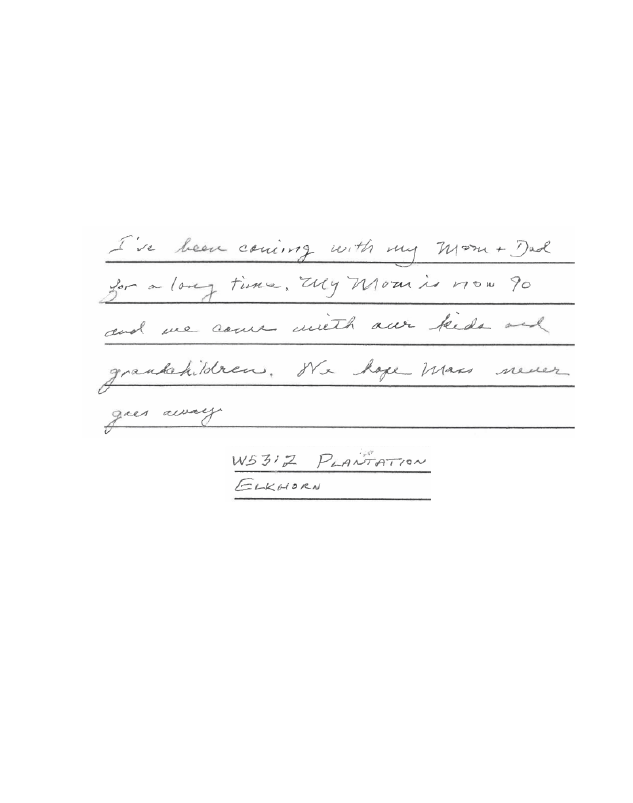 I've been coming with my Mom + Dad
for a long time. My Mom is now 90
and we come with our kids and
grandchildren. We hope Mass never
goes away
W5312 PLANTATION
ELKHORN